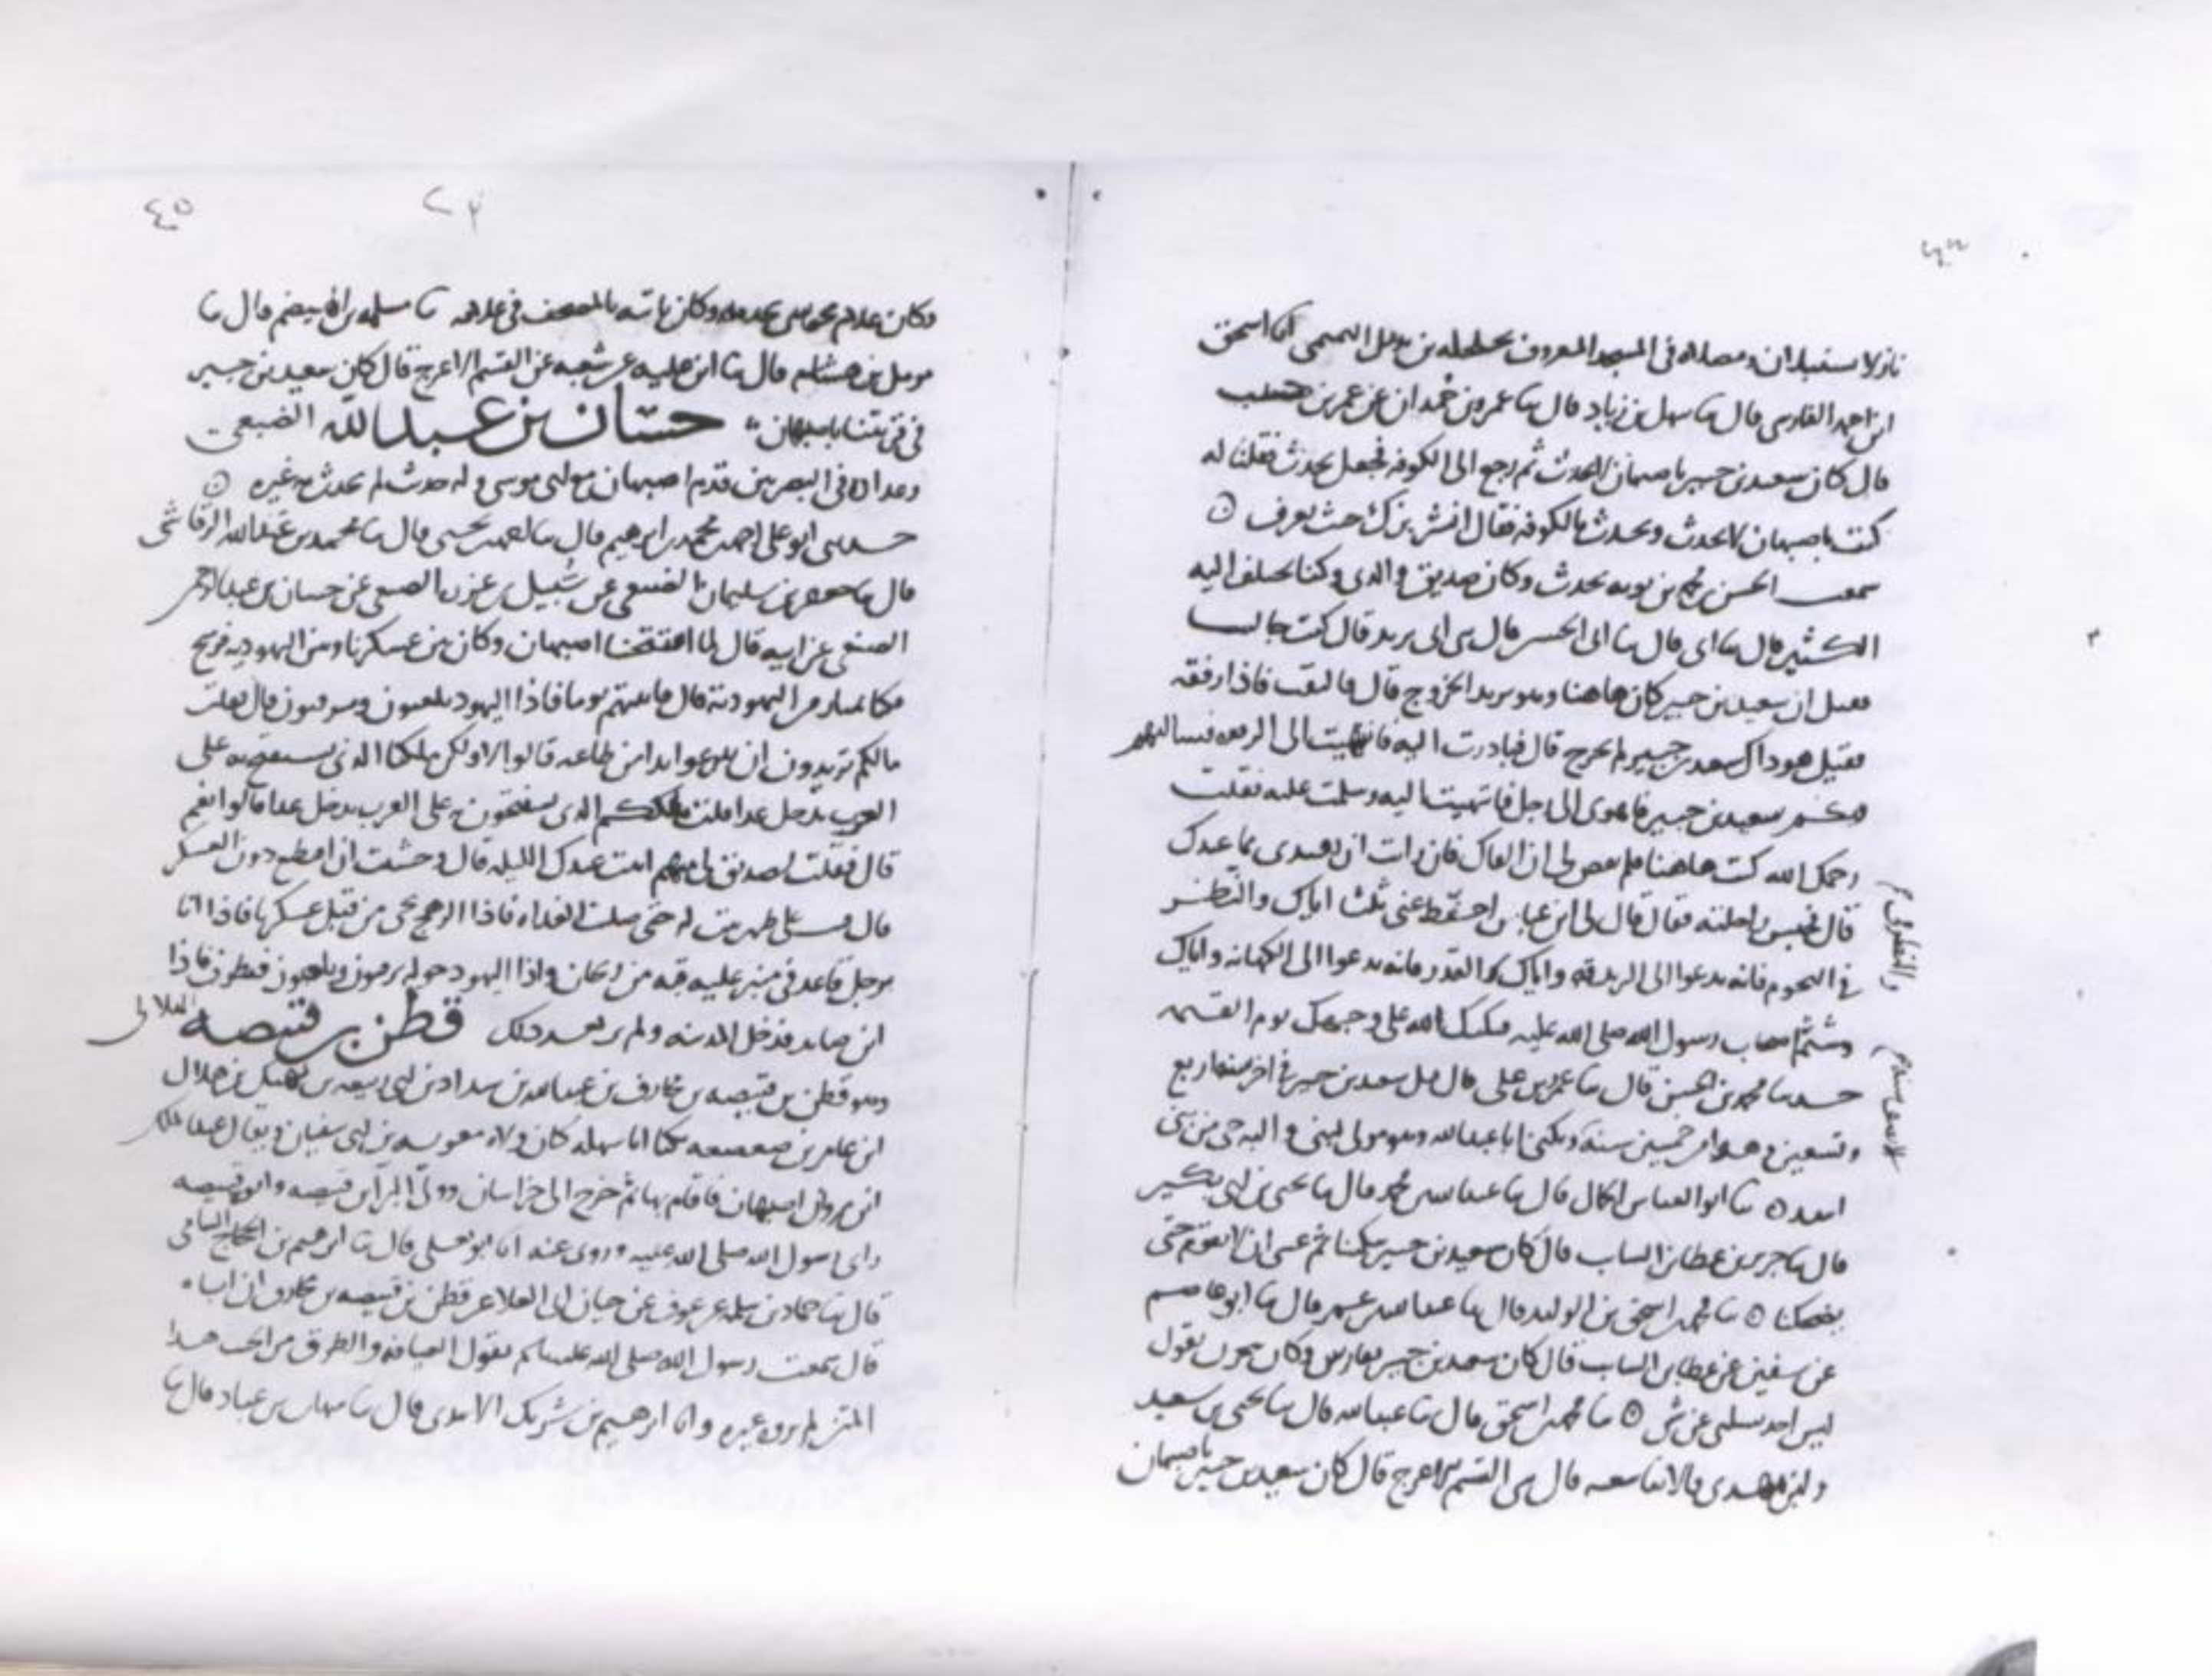 نازلا سنبلان ومصلاه في المسجد المعروف بجلجله بن بديل التميمي انا اسحق
ابن احمد الفارسي قال ثنا سهل بن زياد قال ثنا عمرو بن حمدان عن عمر بن حبيب
قال كان سعيد بن جبير باصبهان لا يحدث ثم رجع الى الكوفه فجعل يحدث فقلنا له
كنت باصبهان لا تحدث وتحدث بالكوفه فقال انشر بزك حيث يعرف
سمعت الحسن بن محمد بن بويه يحدث وكان صديق والدي وكنا نختلف اليه
الكثير قال ثنا ابي قال ثنا ابي الحسن قال بن ابي يزيد قال كنت جالسا
فقيل ان سعيد بن جبير كان هاهنا وهو يريد الخروج قال فالتفت فاذا رفقه
فقيل هو ذاك سعيد بن جبير لم يخرج قال فبادرت اليه فانتهيت الى الرفقه فسالتهم
سعيد بن جبير فاهوى الى رجل فانتهيت اليه وسلمت عليه فقلت
رحمك الله كنت هاهنا فلم يقض لي ان القاك فان رايت ان تفيدني مما عندك
قال فحبس راحلته فقال قال لي ابن عباس احفظ عني ثلثا اياك والنظر
في النجوم فانه يدعوا الى الكهانه واياك والقدر فانه يدعوا الى الزندقه واياك
وشتم اصحاب رسول الله صلى الله عليه فيكبك الله على وجهك يوم القيمه
حدثنا محمد بن الحسن قال ثنا عمرو بن علي قال قتل سعيد بن جبير في اخر سنه اربع
وتسعين وهو ابن خمسين سنة ويكنى ابا عبد الله وهو مولى لبني والبه حي من بني
اسد ثنا ابو العباس الجمال قال ثنا عبد الله بن محمد قال ثنا يحيى بن ابي بكير
قال ثنا جرير عن عطا بن السايب قال كان سعيد بن جبير يبكينا ثم عسى ان لا يقوم حتى
يضحكنا ثنا محمد بن اسحق بن الوليد قال ثنا عبد الله بن عمر قال ثنا ابو عاصم
عن سفين عن عطا بن السايب قال كان سعيد بن جبير بفارس وكان يحزن يقول
ليس احد يسلني عن شي ثنا محمد بن اسحق قال ثنا عبد الله قال ثنا يحيى بن سعيد
وابن مهدي قالا ثنا شعبه قال بن القسم الاعرج قال كان سعيد بن جبير باصبهان
٤٥
وكان غلام مجوسي يخدمه وكان ياتيه بالمصحف في غلافه ثنا مسلم بن الفيض قال ثنا
مومل بن هشام قال ثنا ابن عليه عن شعبه عن القسم الاعرج قال كان سعيد بن جبير
حسان بن عبد الله الضبعي
وعداده في البصريين قدم اصبهان مع ابي موسى وله حديث لم يحدث به غيره
حدثني ابو علي احمد بن محمد بن ابرهيم قال ثنا بن يحيى قال ثنا محمد بن عبد الله الرقاشي
قال ثنا جعفر بن سليمان الضبعي عن شبيل بن عزره الضبعي عن حسان بن عبد الرحمن
الضبعي عن ابيه قال لما افتتحنا اصبهان وكان بين عسكرنا وبين اليهوديه فرسخ
فكنا نمتار من اليهودية قال فاتيتهم يوما فاذا اليهود يلعبون ويزفنون قال فقلت
مالكم تريدون ان تنزعوا يدا من طاعه قالوا لا ولكن ملكنا الذي نستفتح به على
العرب يدخل غدا قلت ملككم الذي تستفتحون على العرب يدخل غدا قالوا نعم
قال فقلت لصديق لي منهم ابيت عندك الليله قال وخشيت ان اقطع دون العسكر
قال فبت على ظهر بيت له حتى صليت الغداه فاذا الرهج يجي من قبل عسكرنا فاذا انا
برجل قاعد في عليه قبه من ريحان واذا اليهود حوله يزفنون ويلعبون فنظرت فاذا
ابن صايد فدخل المدينه ولم ير بعد ذلك قطن بن قبيصه الهلالي
وهو قطن بن قبيصه بن مخارق بن عبد الله بن شداد بن ابي ربيعه بن نهيك بن هلال
ابن عامر بن صعصعه يكنا ابا سهله كان ولاه معويه بن ابي سفيان ويقال عبد الملك
ابن مروان اصبهان فاقام بها ثم خرج الى خراسان وولي الري ابن قبيصه وابوه قبيصه
راى رسول الله صلى الله عليه وروى عنه انا ابو يعلى قال ثنا ابرهيم بن الحجاج السامي
قال ثنا حماد بن سلمه عن عوف عن حيان ابي العلا عن قطن بن قبيصه بن مخارق ان اباه
قال سمعت رسول الله صلى الله عليه وسلم يقول العيافه والطرق من الجبت هذا
المتن لم يرو غيره وانا ابرهيم بن شريك الاسدي قال ثنا شهاب بن عباد قال ثنا